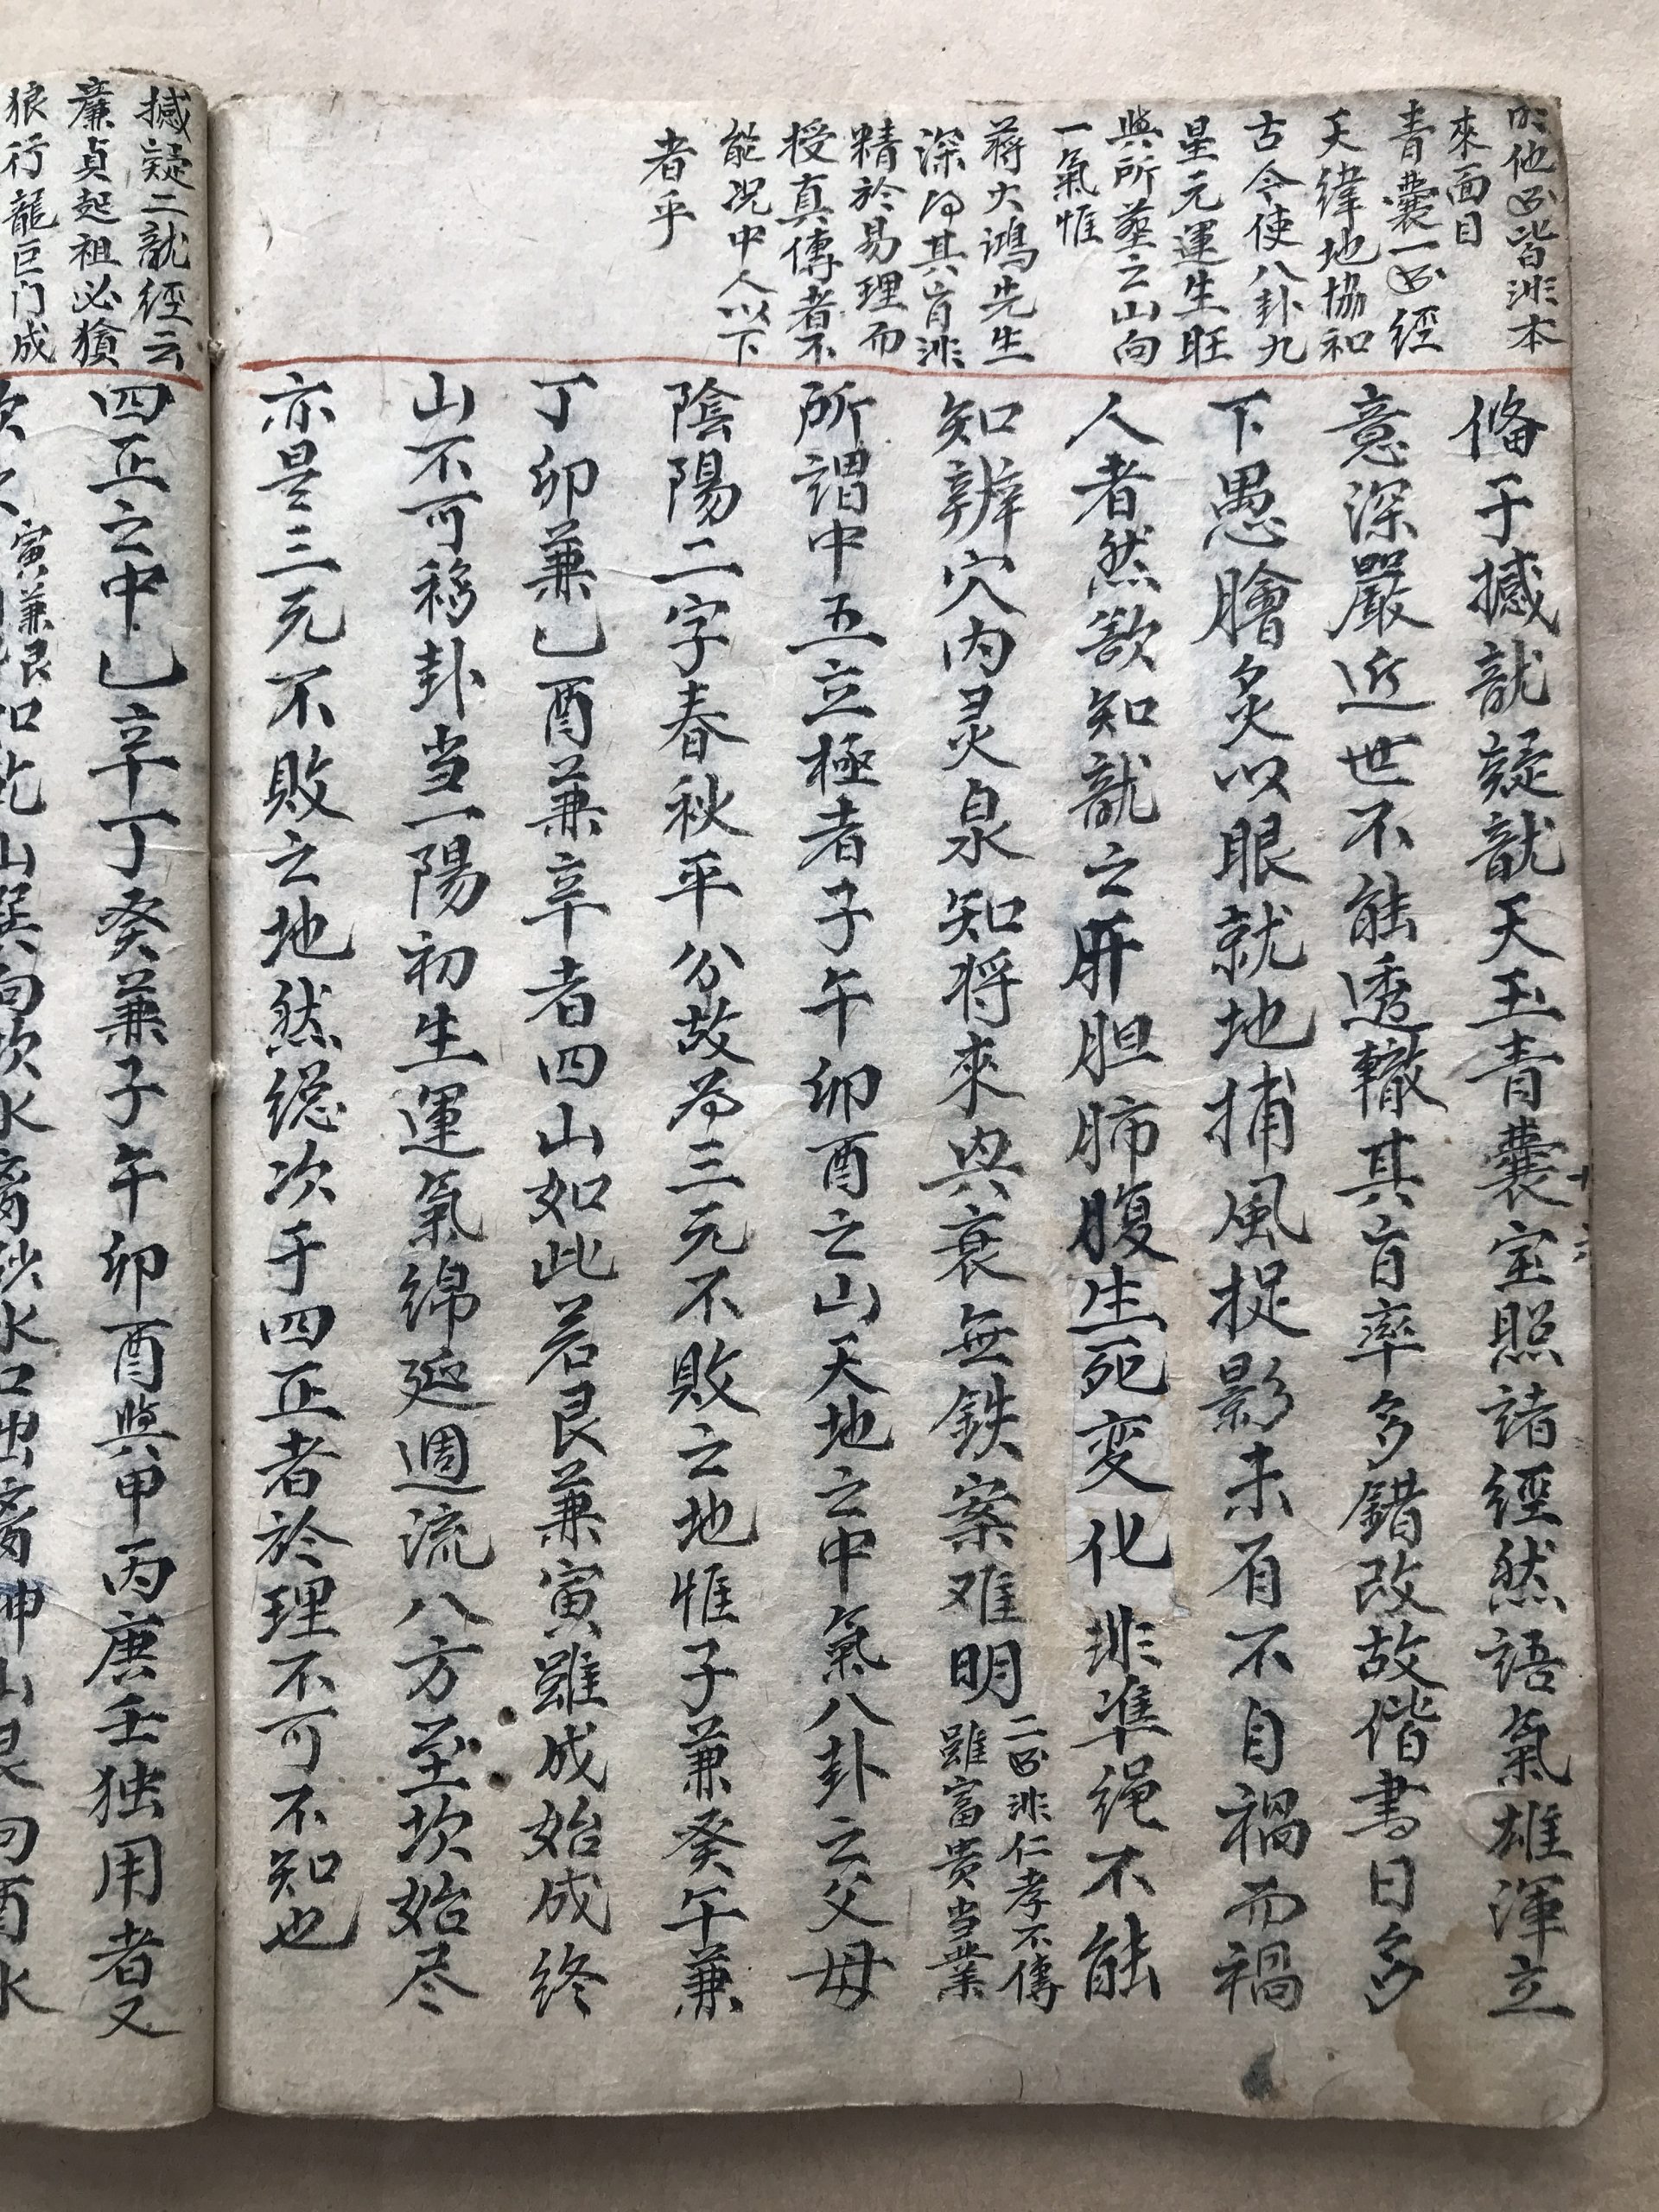 來面目
青囊一書經
天緯地協和
古今使八卦九
星元運生旺
與所塟之山向
一氣惟
蔣大鴻先生
深得其旨非
精於易理而
授真傳者不
能况中人以下
者乎
俻于撼龍疑龍天玉青囊宝照諸經然語氣雄渾立
意深嚴近世不能透轍其旨率多錯改故偕書日多
下愚膾炙以眼就地捕風捉影未有不自禍而禍
人者然欲知龍之肝胆肺腹生死变化非準绳不能
知辨穴内灵泉知将來兴衰無鉄案难明
二書非仁孝不傳
雖富贵当業
所謂中五立極者子午卯酉之山天地之中氣八卦之父母
陰陽二字春秋平分故为三元不敗之地惟子兼癸午兼
丁卯兼乙酉兼辛者四山如此若艮兼寅雖成始成终
山不可移卦当一陽初生運氣綿延週流八方至坎始尽
亦是三元不敗之地然総次于四正者於理不可不知也
撼疑二龍經云
廉貞起祖必獖
狼行龍巨门成
四正之中乙辛丁癸兼子午卯酉與甲丙庚壬独用者又
寅兼艮